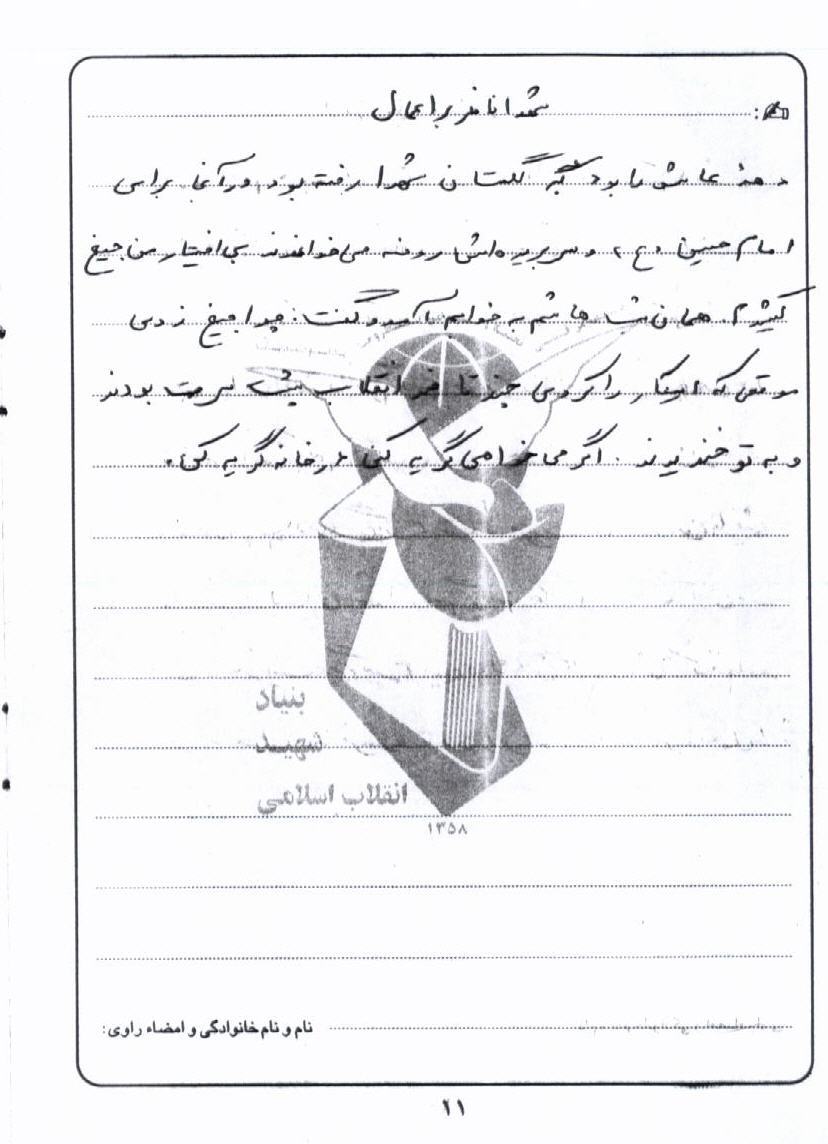 شهدا ناظر بر اعمال
دهه عاشورا بود به گلستان شهدا رفته بودم در آنجا برای
امام حسین (ع) و سر بریده‌اش روضه می‌خواندند بی‌اختیار من جیغ
کشیدم. همان شب هاشم به خوابم آمد و گفت: چرا جیغ زدی
موقعی که اینکار را کردی چند تا ضد انقلاب پشت سرت بودند
و به تو خندیدند. اگر می‌خواهی گریه کنی در خانه گریه کن.
بنیاد
شهید
انقلاب اسلامی
۱۳۵۸
نام و نام خانوادگی و امضاء راوی:
۲۱